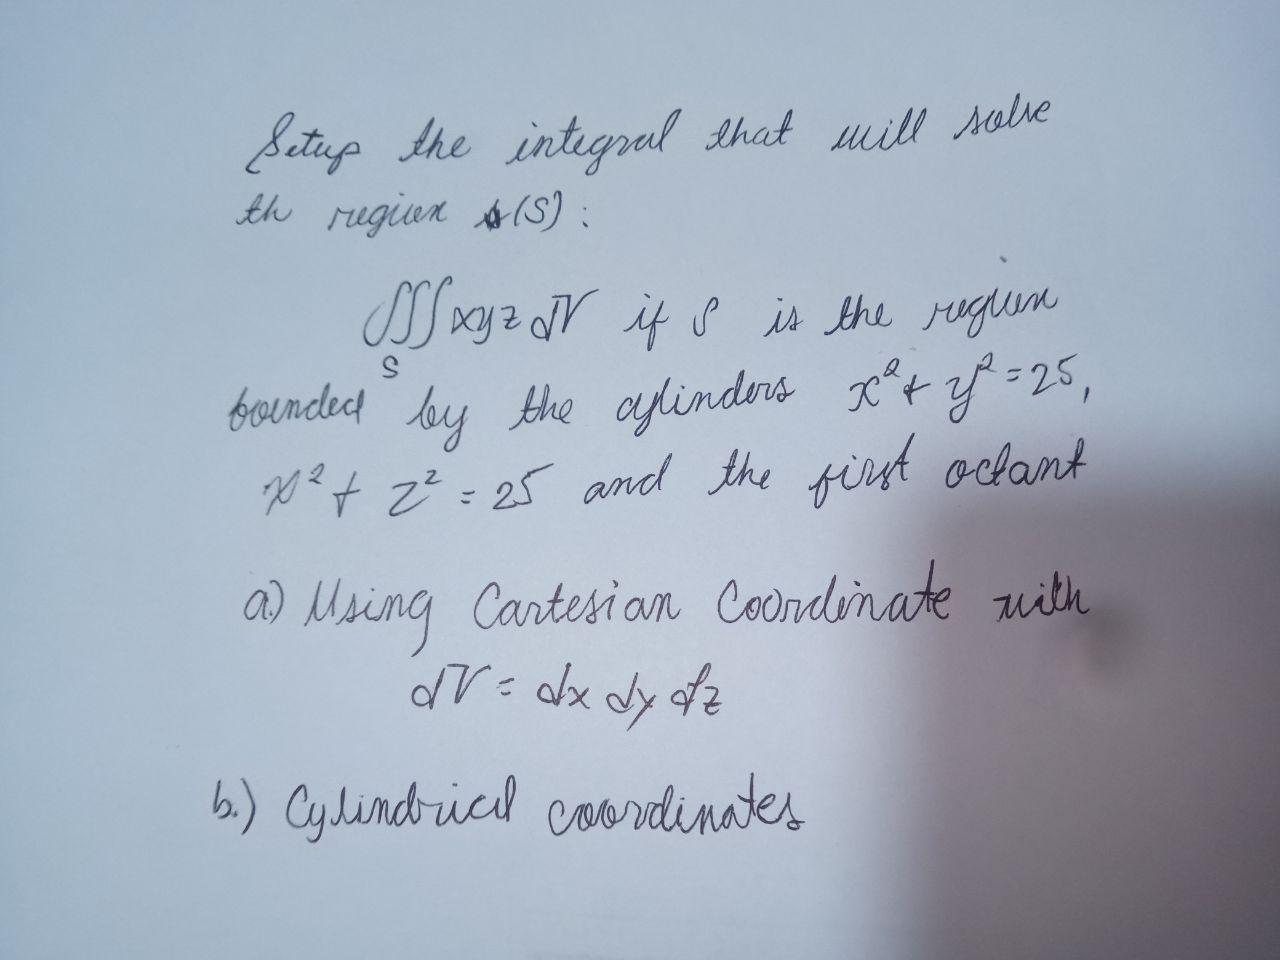 Setup the integral that will solve
th region (S) :
∭ xyz dV if S is the region
S
bounded by the cylinders x² + y² = 25,
x² + z² = 25 and the first octant
a.) Using Cartesian Coordinate with
dV = dx dy dz
b.) Cylindrical coordinates